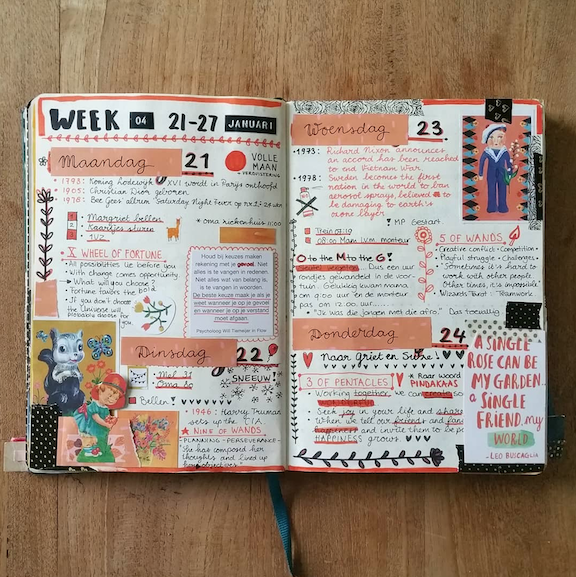 WEEK 04 21-27 JANUARI
Maandag 21
VOLLE
MAAN
+ VERDUISTERING
• 1793: Koning Lodewijk XVI wordt in Parijs onthoofd
• 1905: Christian Dior geboren.
• 1978: Bee Gees' album "Saturday Night Fever" op nr 1: 24 wkn
1. Margriet bellen
2. Kaartjes sturen
3. IUZ
• oma ziekenhuis 11:00
X WHEEL OF FORTUNE
• All possibilities lie before you
• With change comes opportunity.
→ What will you choose?
• Fortune favors the bold
• If you don't choose
the Universe will
probably decide for
you.
Houd bij keuzes maken
rekening met je gevoel. Niet
alles is te vangen in redenen.
Niet alles wat van belang is,
is te vangen in woorden.
De beste keuze maak je als je
weet wanneer je op je gevoel
en wanneer je op je verstand
moet afgaan.
Psycholoog Wil Tiemeijer in Flow
Dinsdag 22
• Mel 31
• Oma 80
SNEEUW
Bellen!
• 1946: Harry Truman
sets up the CIA
NINE OF WANDS
• PLANNING • PERSEVERANCE •
"He has composed her
thoughts and lined up
her objectives."
Woensdag 23
• 1973: Richard Nixon announces
an accord has been reached
to end Vietnam War.
• 1978: Sweden becomes the first
nation in the world to ban
aerosol sprays believed
to be damaging to earth's
ozone layer
! MP Gestart
Trein 07.19
08.00 Mam I.v.m. monteur
O to the M to the G!
Sleutel vergeten. Dus een uur
rondjes gewandeld in de voor-
tuin. Gelukkig kwam mama
om 9:00 uur en de monteur
pas om 12:00 uur.....
"Ik was die jongen met die afro." Das toevallig
5 OF WANDS
• Creative conflict • Competition •
• Playful struggle • Challenges
• "Sometimes it is hard to
work with other people
other times, it's impossible"
• Wizards Tarot: Teamwork
Donderdag 24
Naar Griet en Sietse!
3 OF PENTACLES
Raar woord
PINDAKAAS
• Working together, we can create
• Seek joy in your life and share
• When we tell our friend and
and invite them to be
HAPPINESS grows.
A SINGLE
ROSE CAN BE
MY GARDEN...
a SINGLE
FRIEND, my
WORLD
- LEO BUSCAGLIA